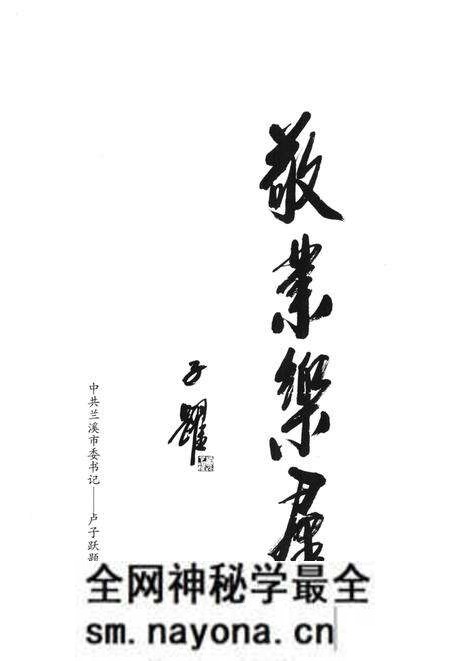 敬業樂群
子躍
中共兰溪市委书记——卢子跃题
全网神秘学最全
sm.nayona.cn